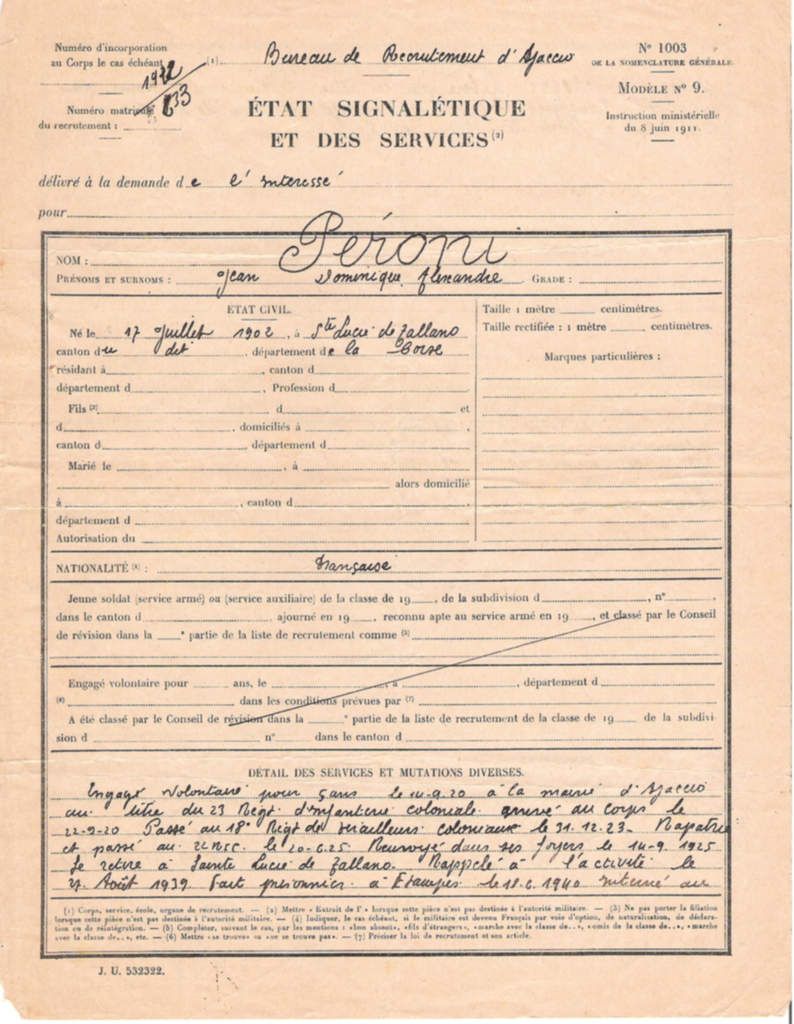 Numéro d'incorporation
au Corps le cas échéant
(1) Bureau de Recrutement d'Ajaccio
N° 1003
DE LA NOMENCLATURE GÉNÉRALE.
MODÈLE N° 9.
Instruction ministérielle
du 8 juin 1911.
1922
633
Numéro matricule
du recrutement :
ÉTAT SIGNALÉTIQUE
ET DES SERVICES (2)
délivré à la demande de l'interessé
pour
NOM : Péroni
PRÉNOMS ET SURNOMS : Jean Dominique Alexandre GRADE :
ETAT CIVIL.
Né le 17 Juillet 1902, à Ste Lucie de Tallano
canton du dit, département de la Corse
résidant à , canton d
département d , Profession d
Fils (3) d et
d , domiciliés à ,
canton d , département d
Marié le , à
alors domicilié
à , canton d
département d
Autorisation du
Taille 1 mètre centimètres.
Taille rectifiée : 1 mètre centimètres.
Marques particulières :
NATIONALITÉ (4) : Française
Jeune soldat (service armé) ou (service auxiliaire) de la classe de 19 , de la subdivision d , n° ,
dans le canton d , ajourné en 19 , reconnu apte au service armé en 19 , et classé par le Conseil
de révision dans la ° partie de la liste de recrutement comme (5)
Engagé volontaire pour ans, le , à , département d
(6) dans les conditions prévues par (7)
A été classé par le Conseil de révision dans la ° partie de la liste de recrutement de la classe de 19 de la subdivi-
sion d n° dans le canton d
DÉTAIL DES SERVICES ET MUTATIONS DIVERSES.
Engagé Volontaire pour 5 ans le -9-20 à la mairie d'Ajaccio
au titre du 23 Régt. d'infanterie coloniale arrivé au corps le
22-9-20 Passé au 18e Régt de tirailleurs coloniaux le 31.12.23. Rapatrié
et passé au le 20-6-25 Renvoyé dans ses foyers le 14-9-1925
Se retire à Sainte Lucie de Tallano. Rappelé à l'activité le
27 Août 1939 Fait prisonnier à Etampes le 18.6.1940 interné au
(1) Corps, service, école, organe de recrutement. — (2) Mettre « Extrait de l' » lorsque cette pièce n'est pas destinée à l'autorité militaire. — (3) Ne pas porter la filiation
lorsque cette pièce n'est pas destinée à l'autorité militaire. — (4) Indiquer, le cas échéant, si le militaire est devenu Français par voie d'option, de naturalisation, de déclara-
tion ou de réintégration. — (5) Compléter, suivant le cas, par les mentions : «bon absent», «fils d'étranger», «marche avec la classe de...», «omis de la classe de...», «marche
avec la classe de...», etc. — (6) Mettre «se trouve» ou «ne se trouve pas». — (7) Préciser la loi de recrutement et son article.
J. U. 532322.